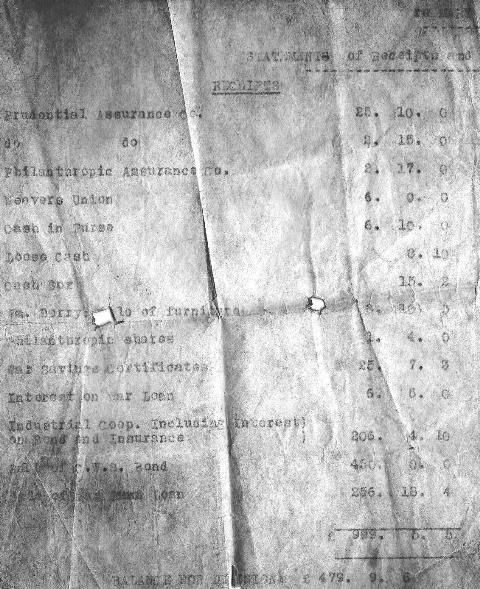 STATEMENTS of Receipts and
RECEIPTS
Prudential Assurance Co. 25. 10. 0
do do 2. 15. 0
Philanthropic Assurance Co. 2. 17. 0
Weavers Union 6. 0. 0
Cash in Purse 6. 10. 0
Loose Cash
Cash Box 15. 2
Wm. Berry of furniture
Philanthropic shares 4. 0
War Savings Certificates 25. 7. 3
Interest on War Loan
Industrial Coop. Including interest)
on Bond and Insurance ) 206. 4. 10
C.W.S. Bond
Sale of Loan 256. 18. 4
£ 999. 5. 5
BALANCE FOR DIVISION £ 479. 9. 6